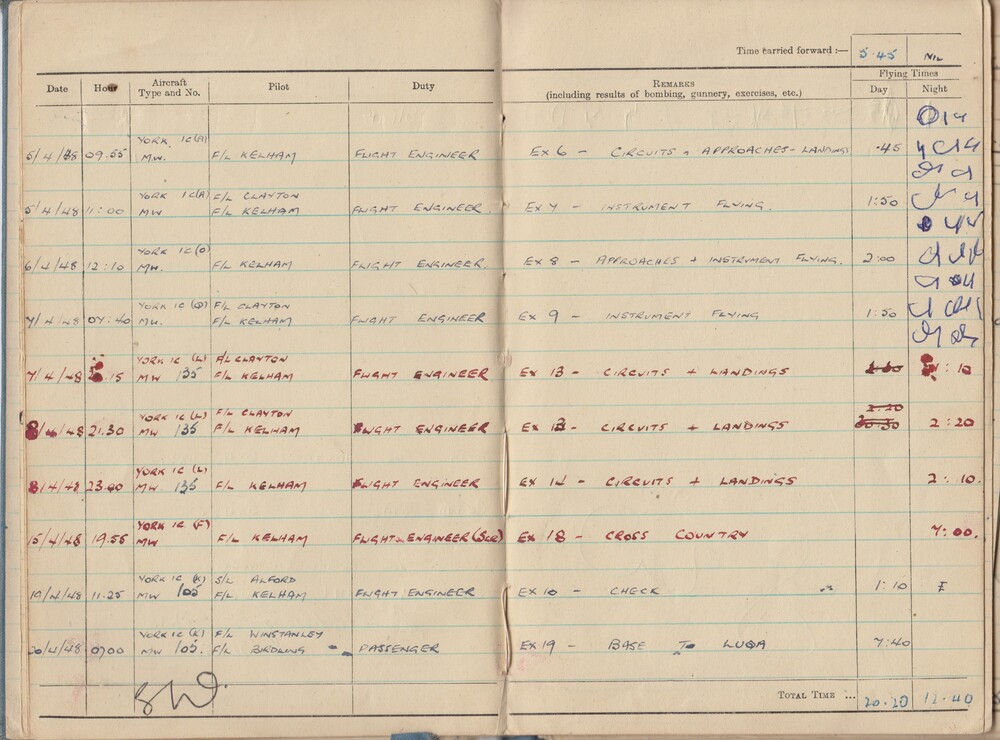 Time carried forward :— 5.45 NIL
Date Hour Aircraft Type and No. Pilot Duty REMARKS (including results of bombing, gunnery, exercises, etc.) Flying Times Day Night
YORK IC(A)
5/4/48 09.55 MW. F/L KELHAM FLIGHT ENGINEER EX 6 - CIRCUITS + APPROACHES - LANDINGS .45
YORK IC(A) F/L CLAYTON
5/4/48 11:00 MW F/L KELHAM FLIGHT ENGINEER EX 7 - INSTRUMENT FLYING. 1:50
YORK IC(O)
6/4/48 12:10 MW. F/L KELHAM FLIGHT ENGINEER. EX 8 - APPROACHES + INSTRUMENT FLYING. 2:00
YORK IC F/L CLAYTON
7/4/48 07:40 MW. F/L KELHAM FLIGHT ENGINEER EX 9 - INSTRUMENT FLYING 1:50
YORK IC (L) F/L CLAYTON
7/4/48 .15 MW 135 F/L KELHAM FLIGHT ENGINEER EX 13 - CIRCUITS + LANDINGS :10
YORK IC (L) F/L CLAYTON 2:20
8/4/48 21.30 MW 135 F/L KELHAM FLIGHT ENGINEER EX 13 - CIRCUITS + LANDINGS 2:20
YORK IC (L)
8/4/48 23.00 MW 135 F/L KELHAM FLIGHT ENGINEER EX 14 - CIRCUITS + LANDINGS 2:10.
YORK IC (F)
15/4/48 19.55 MW F/L KELHAM FLIGHT ENGINEER EX 18 - CROSS COUNTRY 7:00.
YORK IC (K) S/L ALFORD
19/4/48 11.25 MW 105 F/L KELHAM FLIGHT ENGINEER EX 10 - CHECK 1:10
YORK IC (K) F/L WINSTANLEY
20/4/48 0700 MW 105. F/L BIRDLING PASSENGER EX 19 - BASE TO LUQA 7:40
TOTAL TIME ... 20.20 12.40